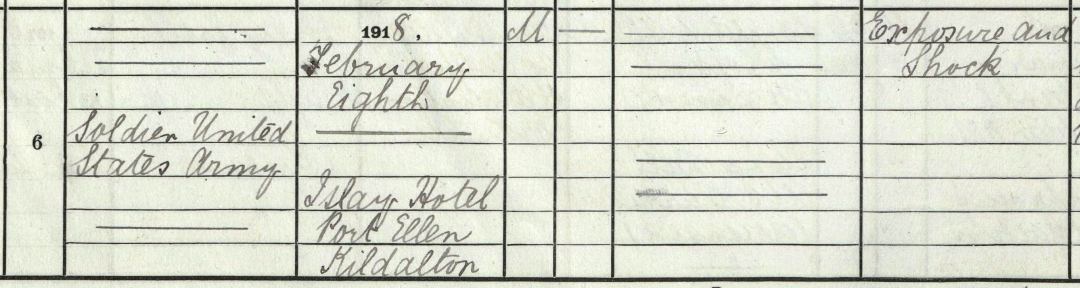 6
Soldier United
States Army
1918.
February
Eighth
Islay Hotel
Port Ellen
Kildalton
M
Exposure and
Shock